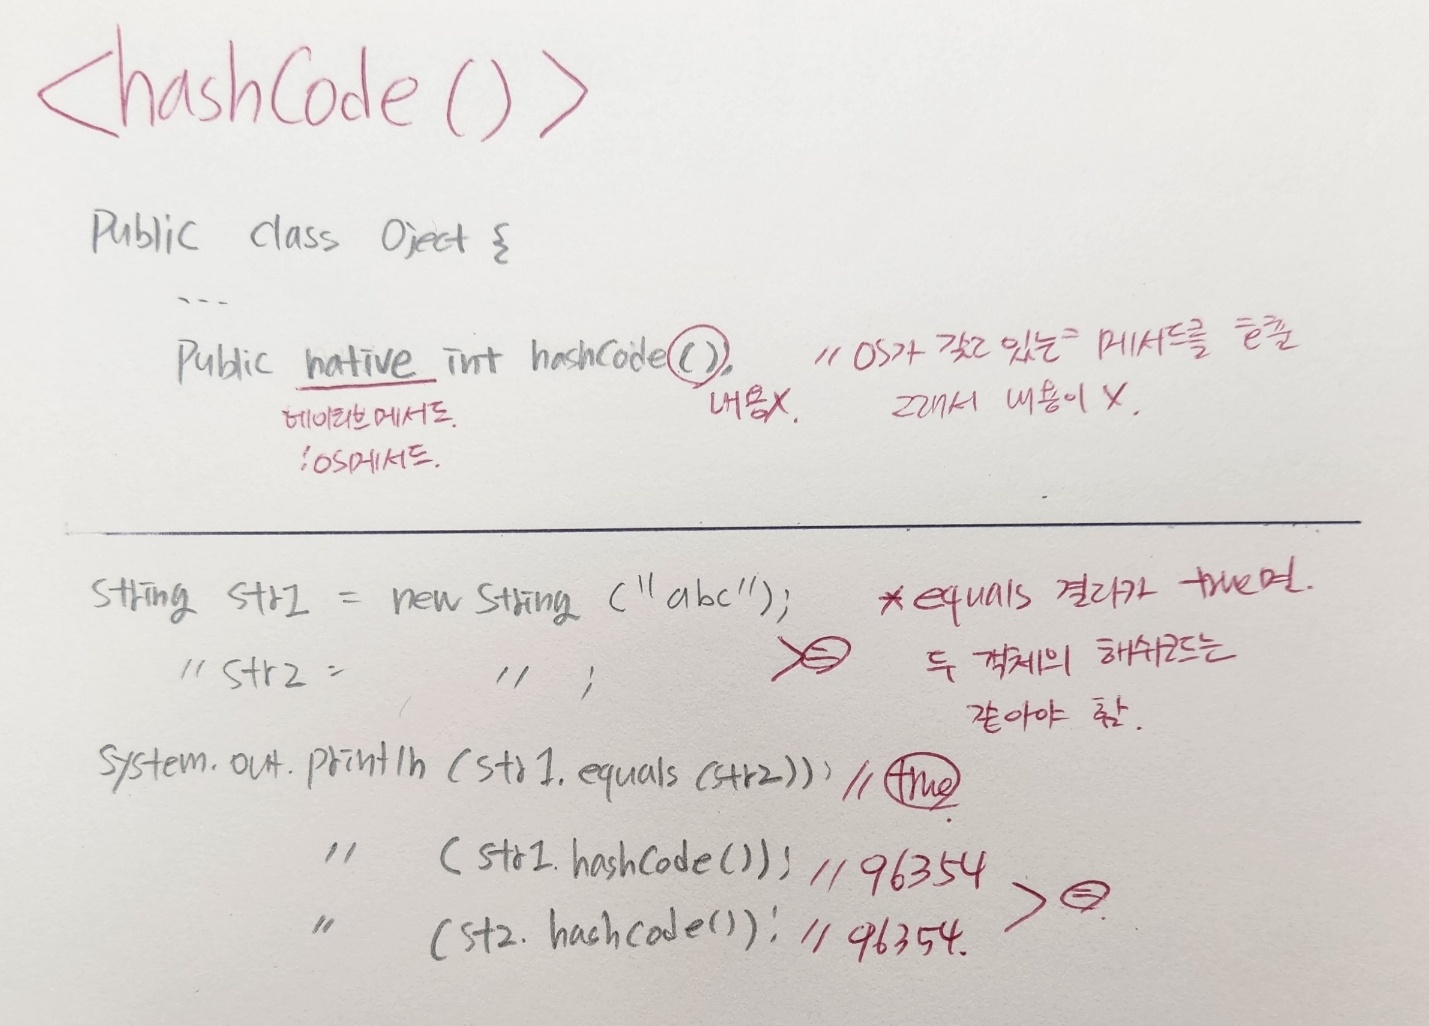 <hashCode()>
Public class Oject {
...
Public native int hashCode(); // OS가 갖고 있는 메서드를 호출
네이티브메서드. 내용X. 그래서 내용이 X.
:OS메서드.
String str1 = new String ("abc"); * equals 결과가 true면.
" str2 = " ; > = 두 객체의 해쉬코드는
같아야 함.
System.out.println (str1.equals (str2)); // true.
" (str1.hashCode()); // 96354
" (st2.hashcode()); // 96354. > =